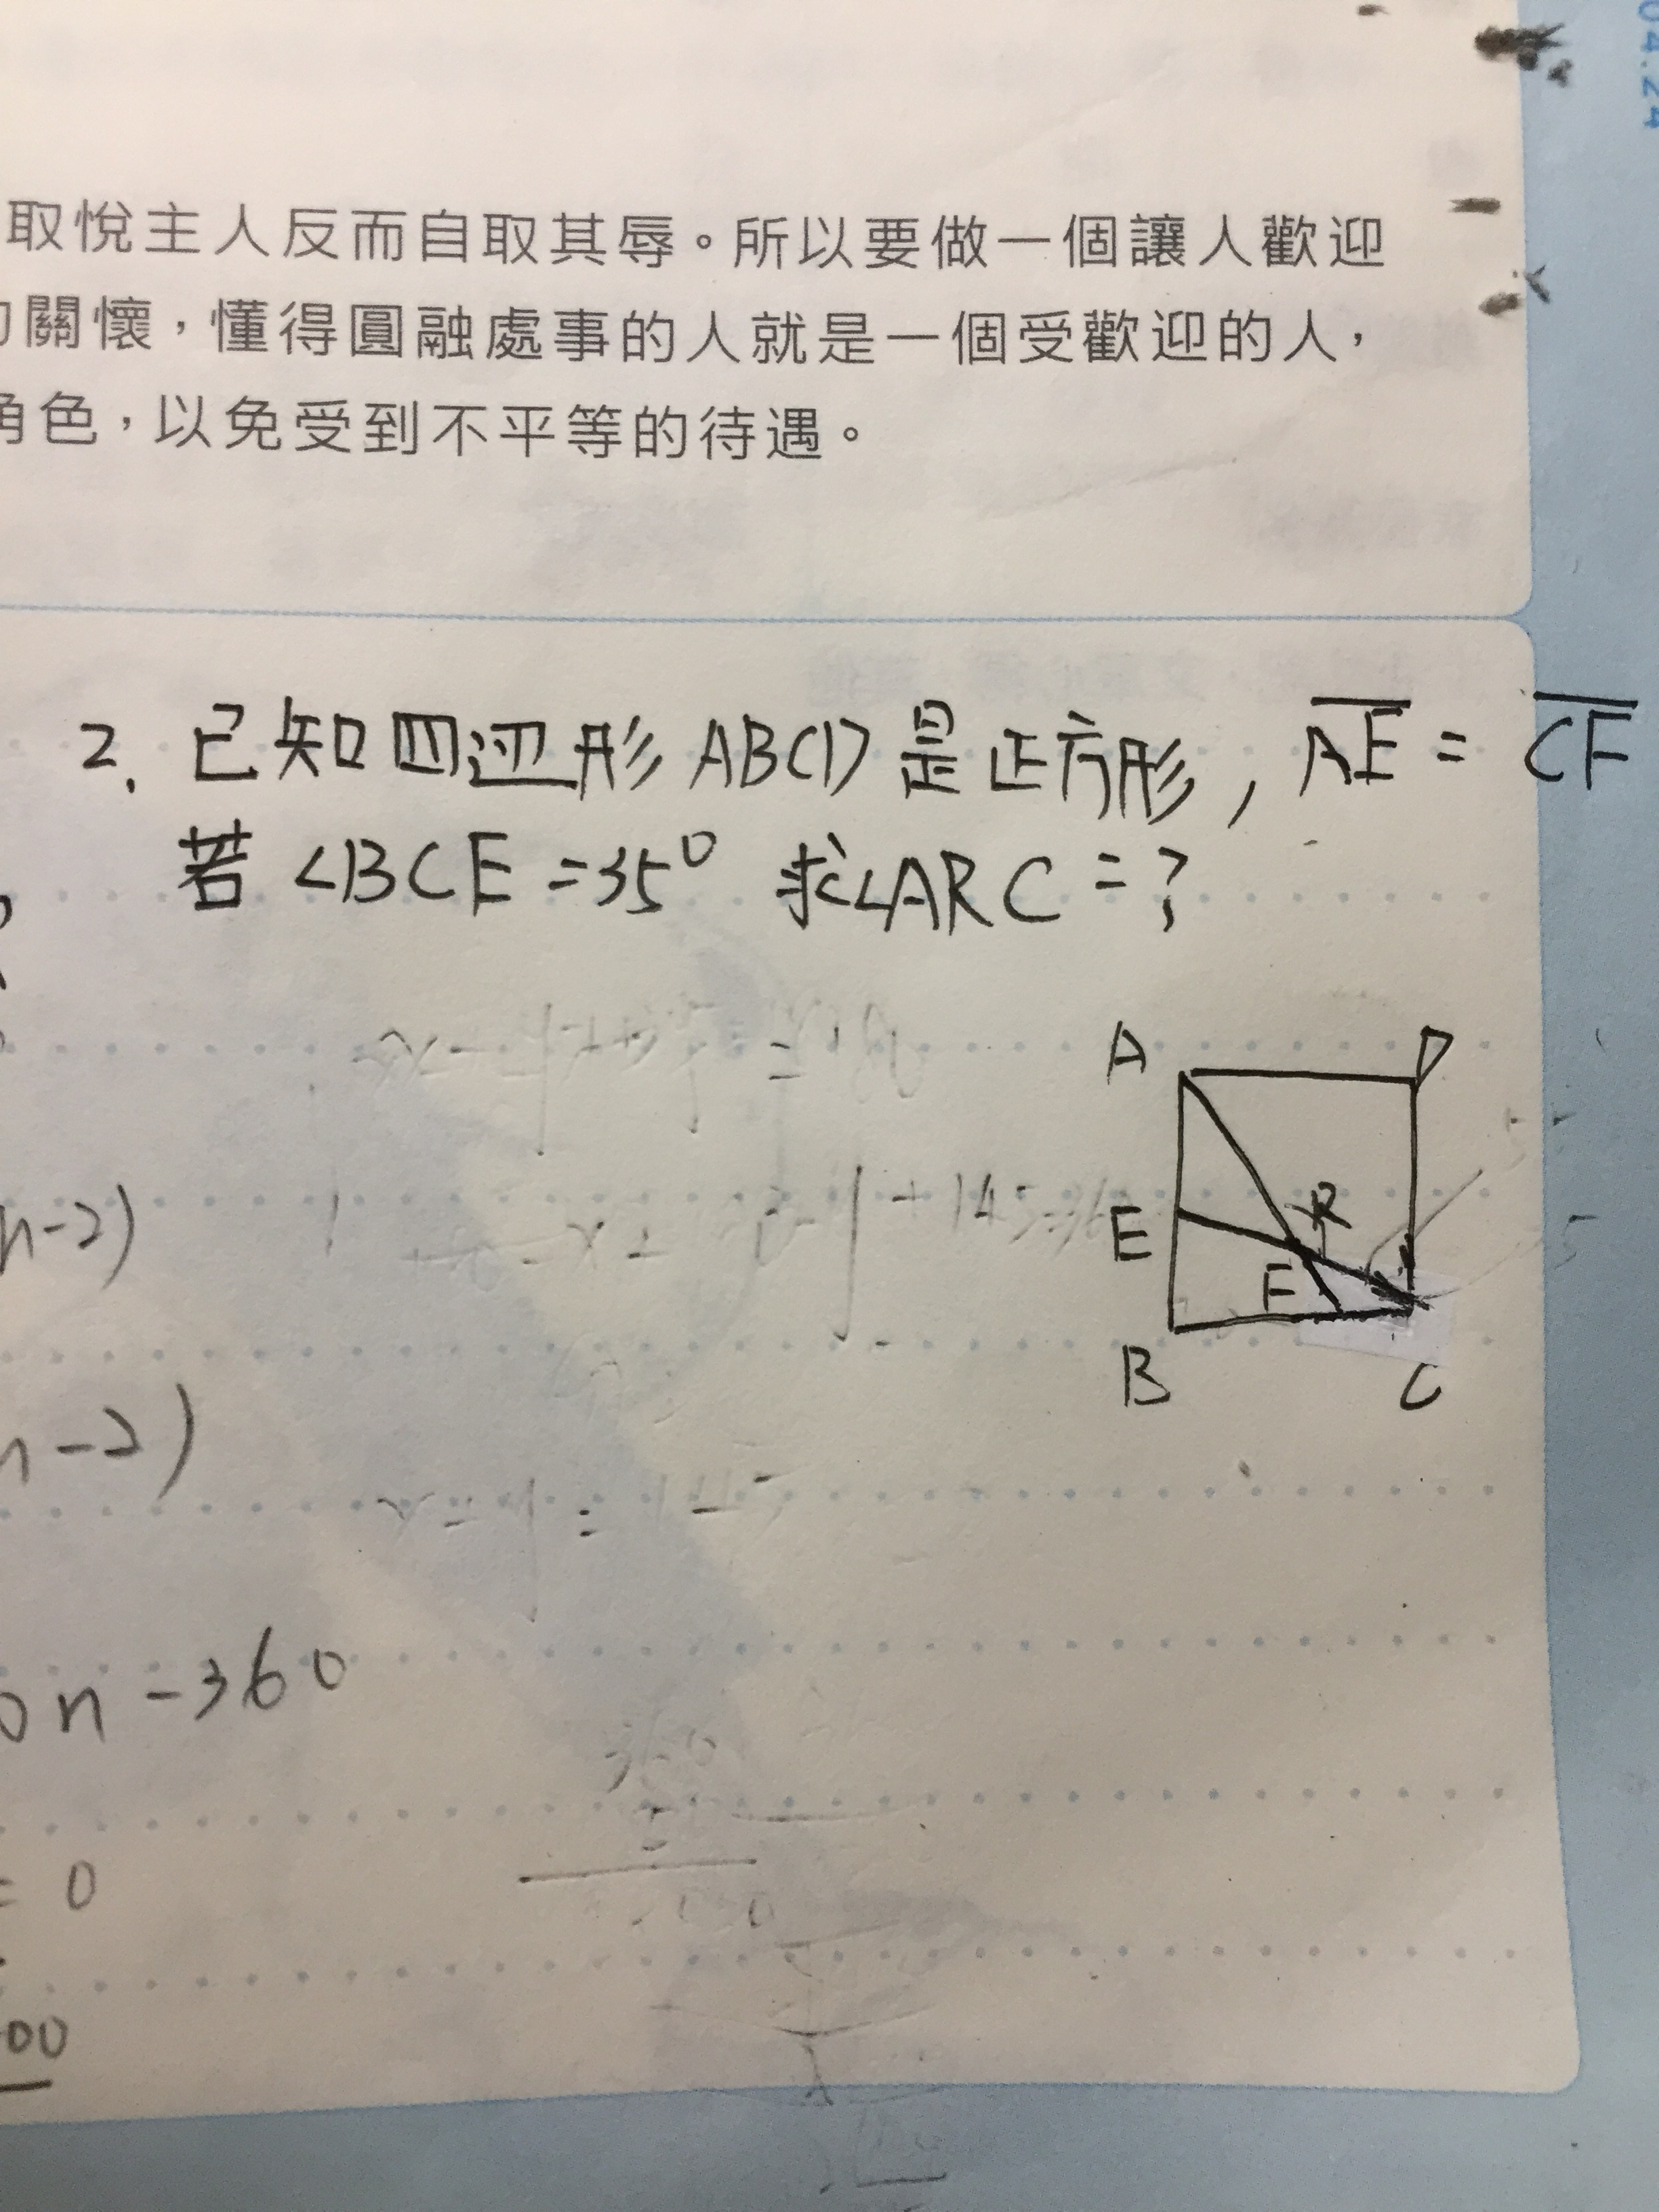 04.24
取悅主人反而自取其辱。所以要做一個讓人歡迎
關懷，懂得圓融處事的人就是一個受歡迎的人，
角色，以免受到不平等的待遇。
2. 已知四边形ABCD是正方形, AE = CF
若∠BCE=35° 求∠ARC=?
A D
E R
F
B C
n-2)
n-2)
n-360
= 0
00